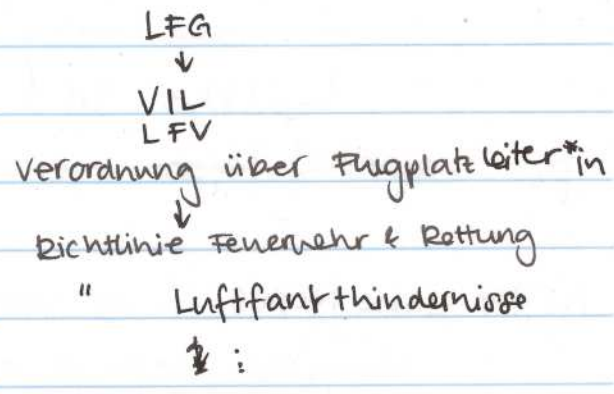 LFG
↓
VIL
LFV
Verordnung über Flugplatzleiter*in
↓
Richtlinie Feuerwehr & Rettung
" Luftfahrthindernisse
: